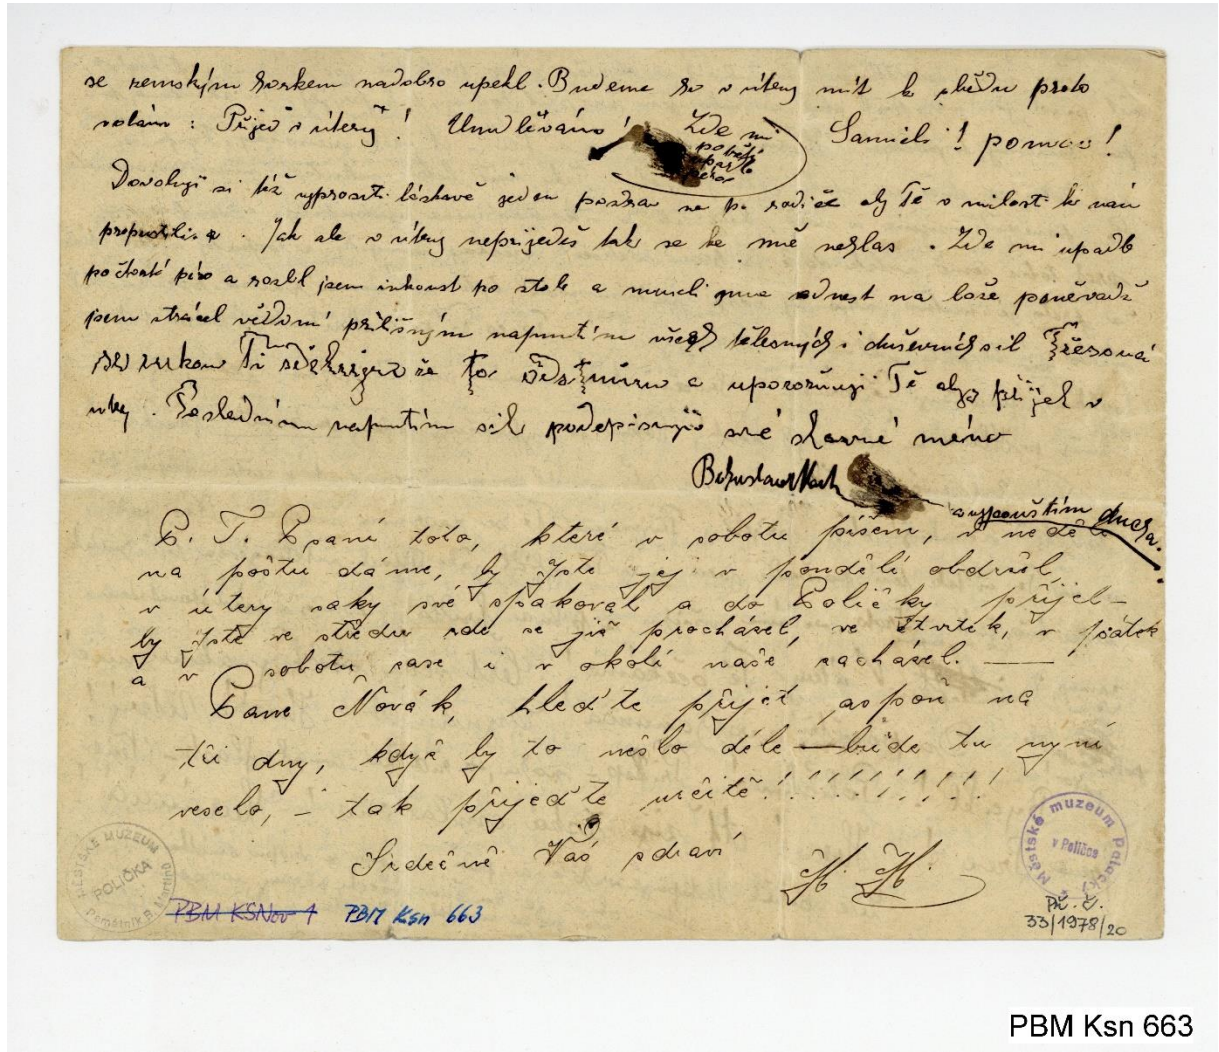 se zemským horkem nadobro upekl. Budeme ho v úterý mít k obědu proto
volám: Přijeď v úterý! Umdléváno! Zde mi Samieli! pomoc!
potřetí
upadlo
péro
Dovoluji si též vyprositi láskavě jeden pozdrav na p. rodiče aby Tě v milosti k nám
propustili. Jak ale v úterý nepřijedeš tak se ke mně nehlas. Zde mi upadlo
počtvrté péro a rozlil jsem inkoust po stole a museli mne odnest na lože poněvadž
jsem ztrácel vědomí přílišným napnutím všech tělesných i duševních sil Třesoucí
se rukou Ti že to a upozorňuji Tě abys přijel v
úterý. Posledním napnutím sil podepisuji své slavné méno
Bohuslav
a vypouštím ducha.
P. T. Psaní toto, které v sobotu píšem, v neděli
na poštu dáme, by jste jej v pondělí obdržel,
v úterý saky své spakoval a do Poličky přijel –
by jste ve středu zde se již procházel, ve čtvrtek, v pátek
a v sobotu zase i v okolí naše zacházel. —
Pane Novák, hleďte přijet aspoň na
tři dny, když by to nešlo déle — bude tu nyní
veselo, – tak přijeďte určitě!!!!!!!!!!
Srdečně Vás zdraví
MĚSTSKÉ MUZEUM
POLIČKA
Památník B. Martinů
PBM KSNov 1 PBM Ksn 663
Městské muzeum Palackého
v Poličce
Př. č.
33/1978/20
PBM Ksn 663